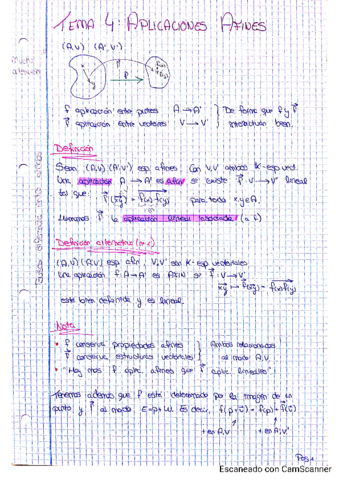 TEMA 4: APLICACIONES AFINES
(A,V) (A',V')
f aplicación entre puntos A → A' } De forma que f y f⃗
f⃗ aplicación entre vectores V → V' } interactúan bien.
Definición
Sean (A,V) (A',V') esp. afines. Con V,V' ambos K-esp. vect.
Una aplicación A → A' es AFÍN si existe f⃗: V → V' lineal
tal que: f⃗(xy) = f(x)f(y) para todo x,y∈A.
Llamamos f⃗ la aplicación lineal asociada (a f)
Definición alternativa
(A,V) (A',V') esp. afín, V,V' son K-esp vectoriales
Una aplicación f: A→A' es AFÍN si f⃗: V → V'
xy ↦ f⃗(xy) = f(x)f(y)
está bien definida y es lineal.
Nota
• f conserva propiedades afines } Ambas relacionadas
f⃗ conserva estructuras vectoriales } al modo A,V.
• "Hay mas f aplic. afines que f⃗ aplic. lineales"
Tenemos además que f está determinada por la imagen de un
punto y f⃗ al modo E=p+W. Es decir, f(p+v⃗) = f(p)+f⃗(v⃗)
+ en A,V + en A',V'
Pág 1
Escaneado con CamScanner